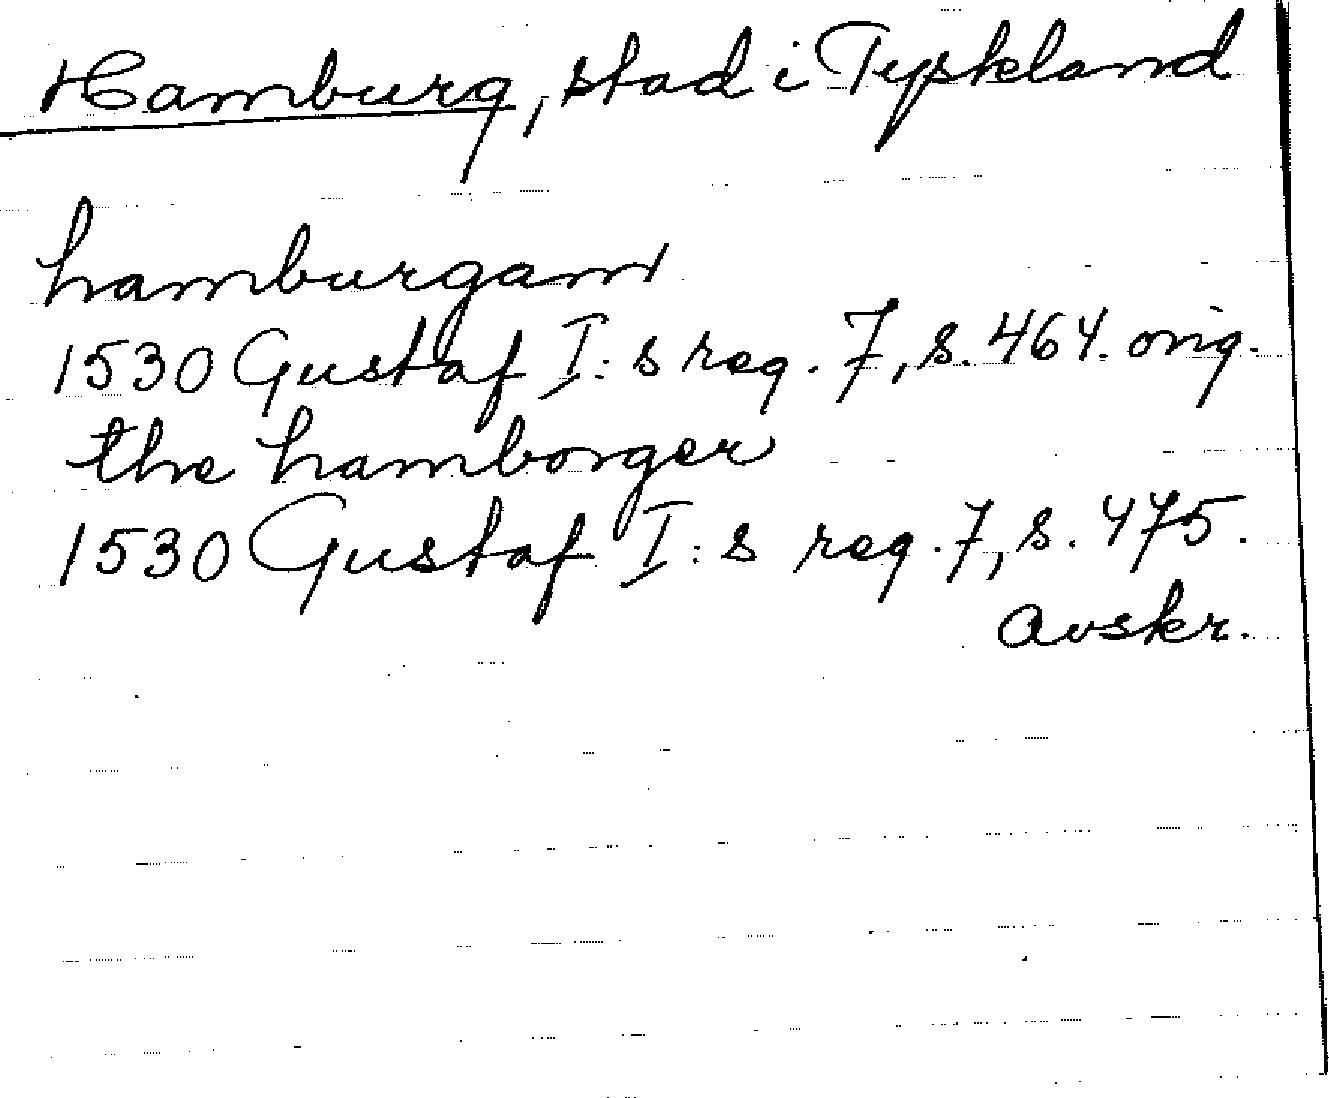 Hamburg, stad i Tyskland
hamburgam
1530 Gustaf I:s reg. 7, s. 464. orig.
the hamborger
1530 Gustaf I:s reg. 7, s. 475.
avskr.